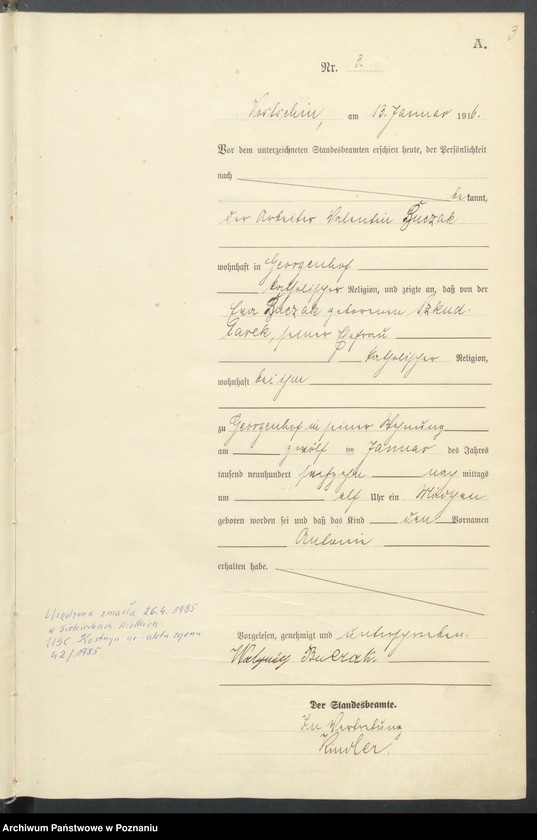 3
A.
Nr. 3.
am 13. Januar 1916.
Vor dem unterzeichneten Standesbeamten erschien heute, der Persönlichkeit
nach
be kannt,
der Arbeiter Valentin
wohnhaft in Georgenhof
katholischer Religion, und zeigte an, daß von der
Eva geborenen Szkud-
larek, seiner Ehefrau
katholischer Religion,
wohnhaft bei ihm
zu Georgenhof in seiner Wohnung
am zwölf ten Januar des Jahres
tausend neunhundert sechzehn nach mittags
um elf Uhr ein Mädchen
geboren worden sei und daß das Kind den Vornamen
Antonie
erhalten habe.
Vorgelesen, genehmigt und unterschrieben.
Walenty
Der Standesbeamte.
In Vertretung
Urodzona zmarła 26.4.1985
w Siekierkach Wielkich
USC Kostrzyn nr aktu zgonu
42/1985
Archiwum Państwowe w Poznaniu